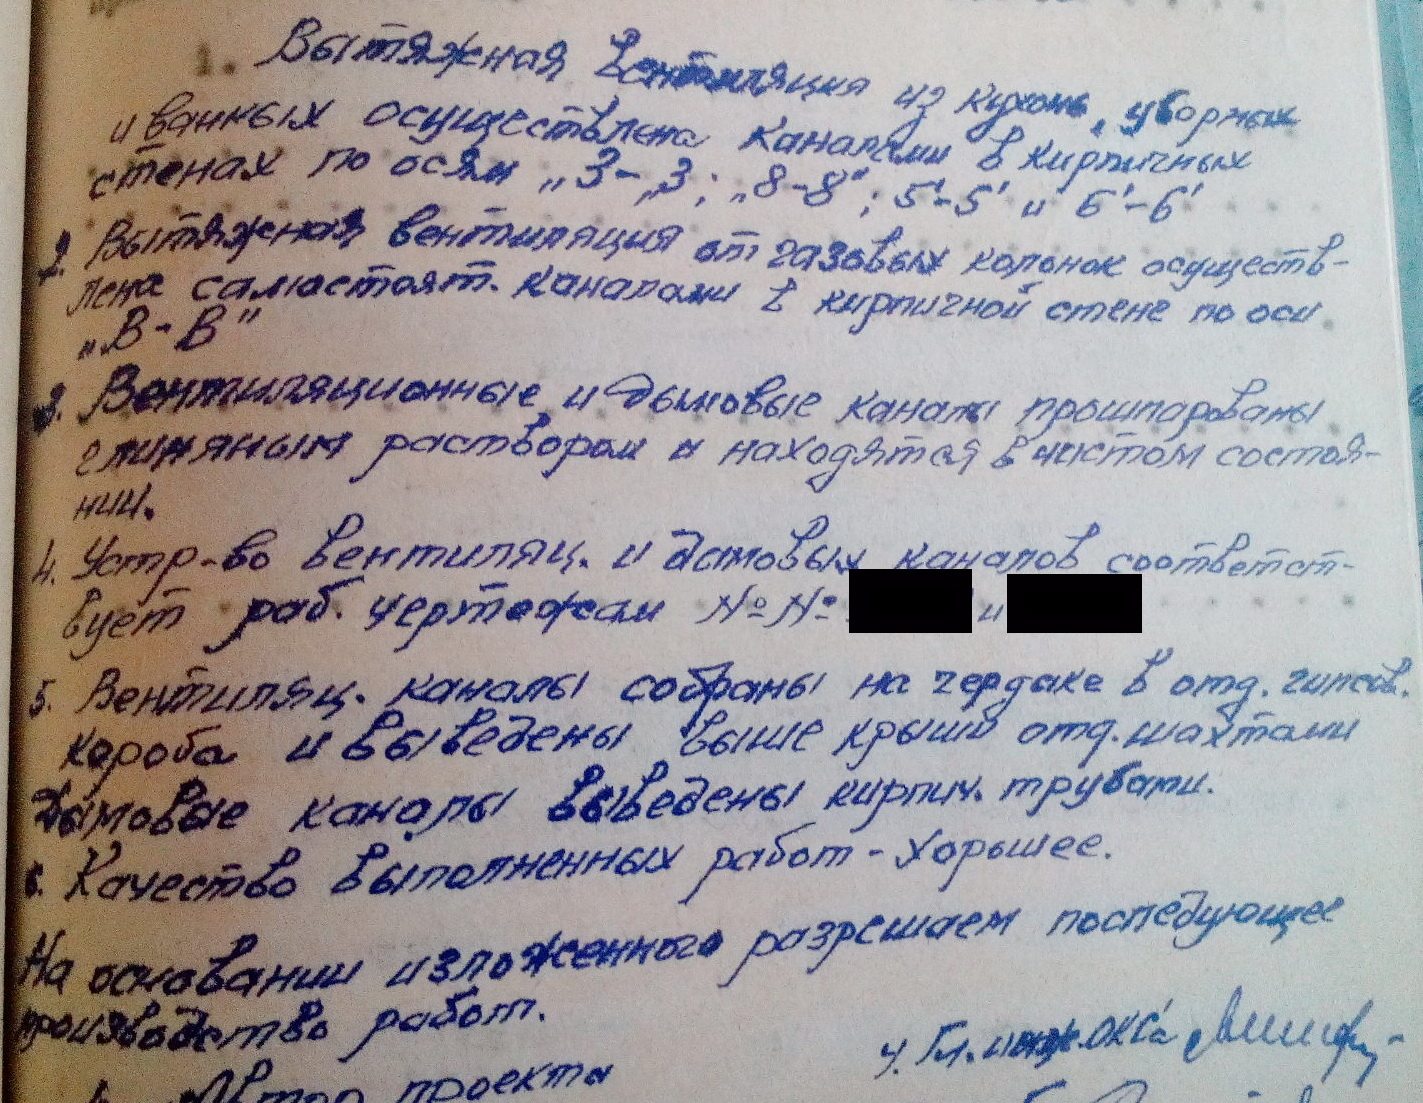 1. Вытяжная вентиляция из кухонь, уборных
и ванных осуществлена каналами в кирпичных
стенах по осям „3-„3; „8-8"; 5'-5' и 6'-6'
2. Вытяжная вентиляция от газовых колонок осуществ-
лена самостоят. каналами в кирпичной стене по оси
„В-В"
3. Вентиляционные и дымовые каналы прошпарованы
глиняным раствором и находятся в чистом состоя-
нии.
4. Устр-во вентиляц. и дымовых каналов соответст-
вует раб. чертежам №№ и
5. Вентиляц. каналы собраны на чердаке в отд. гипсов.
короба и выведены выше крыши отд. шахтами
Дымовые каналы выведены кирпич. трубами.
6. Качество выполненных работ - хорошее.
На основании изложенного разрешаем последующее
производство работ.
4. Гл. инж. ОКС'а
Автор проекта